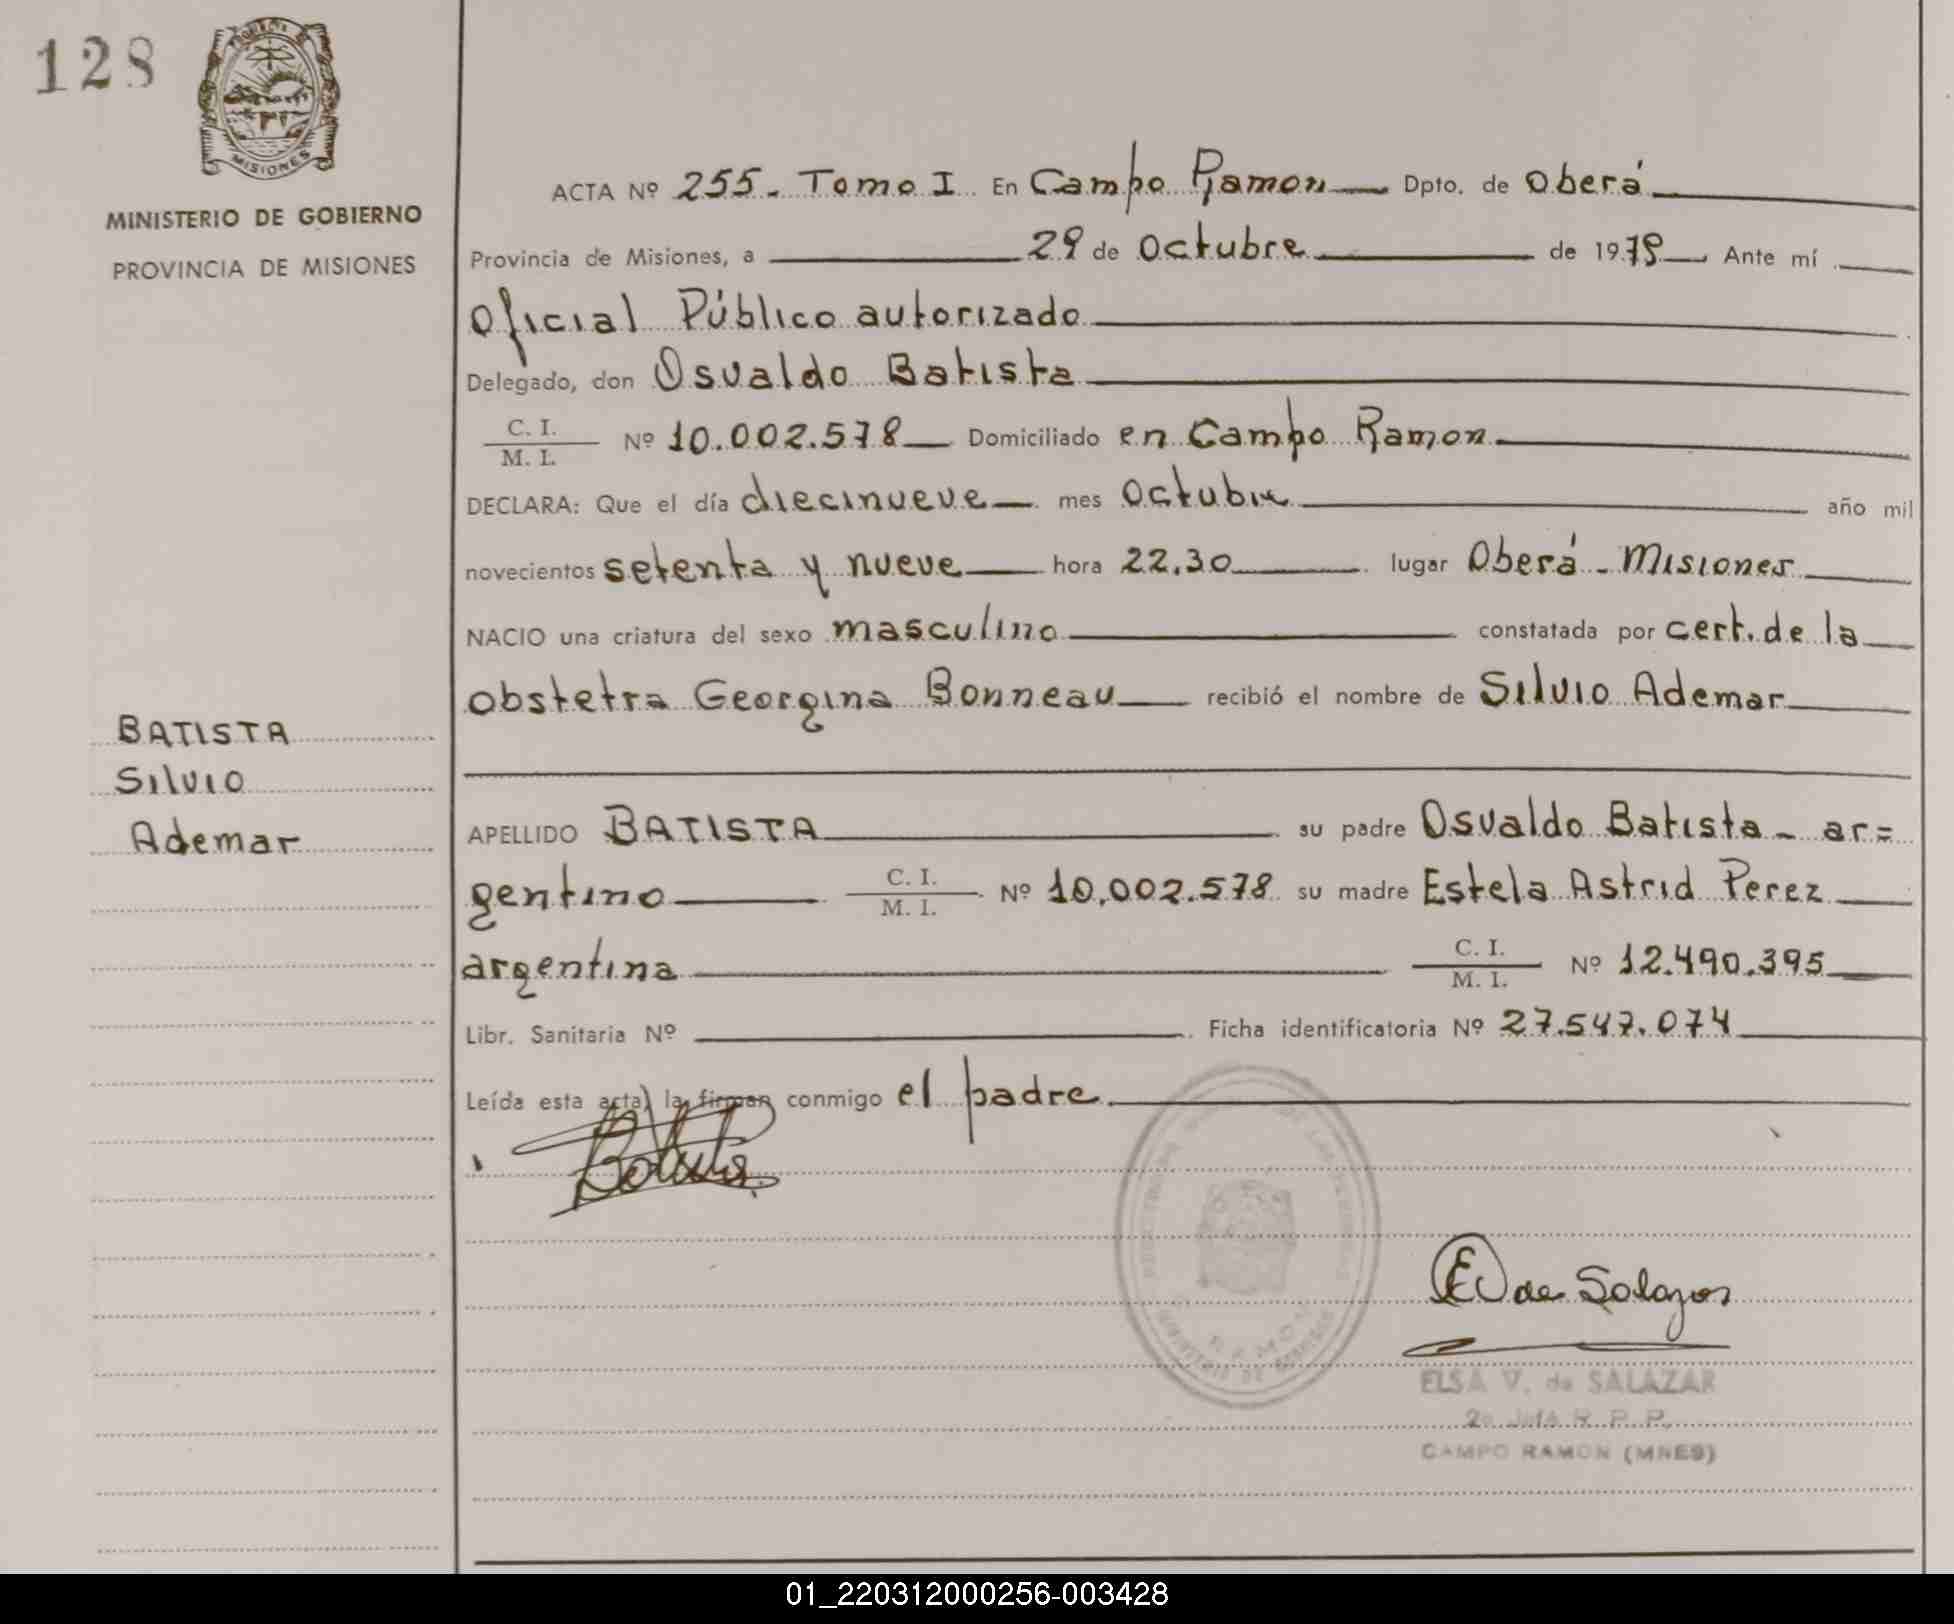 128
MISIONES
MINISTERIO DE GOBIERNO
PROVINCIA DE MISIONES
BATISTA
Silvio
Ademar
ACTA Nº 255. Tomo I En Campo Ramon Dpto. de Oberá
Provincia de Misiones, a 29 de Octubre de 1979 Ante mí
Oficial Público autorizado
Delegado, don Osvaldo Batista
C. I.
M. I. Nº 10.002.578 Domiciliado en Campo Ramon
DECLARA: Que el día diecinueve mes Octubre año mil
novecientos setenta y nueve hora 22.30 lugar Oberá - Misiones
NACIO una criatura del sexo masculino constatada por cert. de la
obstetra Georgina Bonneau recibió el nombre de Silvio Ademar
APELLIDO BATISTA su padre Osvaldo Batista - ar=
gentino C. I. M. I. Nº 10.002.578 su madre Estela Astrid Perez
argentina C. I. M. I. Nº 12.490.395
Libr. Sanitaria Nº Ficha identificatoria Nº 27.547.074
Leída esta acta, la firman conmigo el padre
Batista
E V de Salazar
ELSA V. de SALAZAR
2a Jefa R. P. P.
CAMPO RAMON (MNES)
01_220312000256-003428